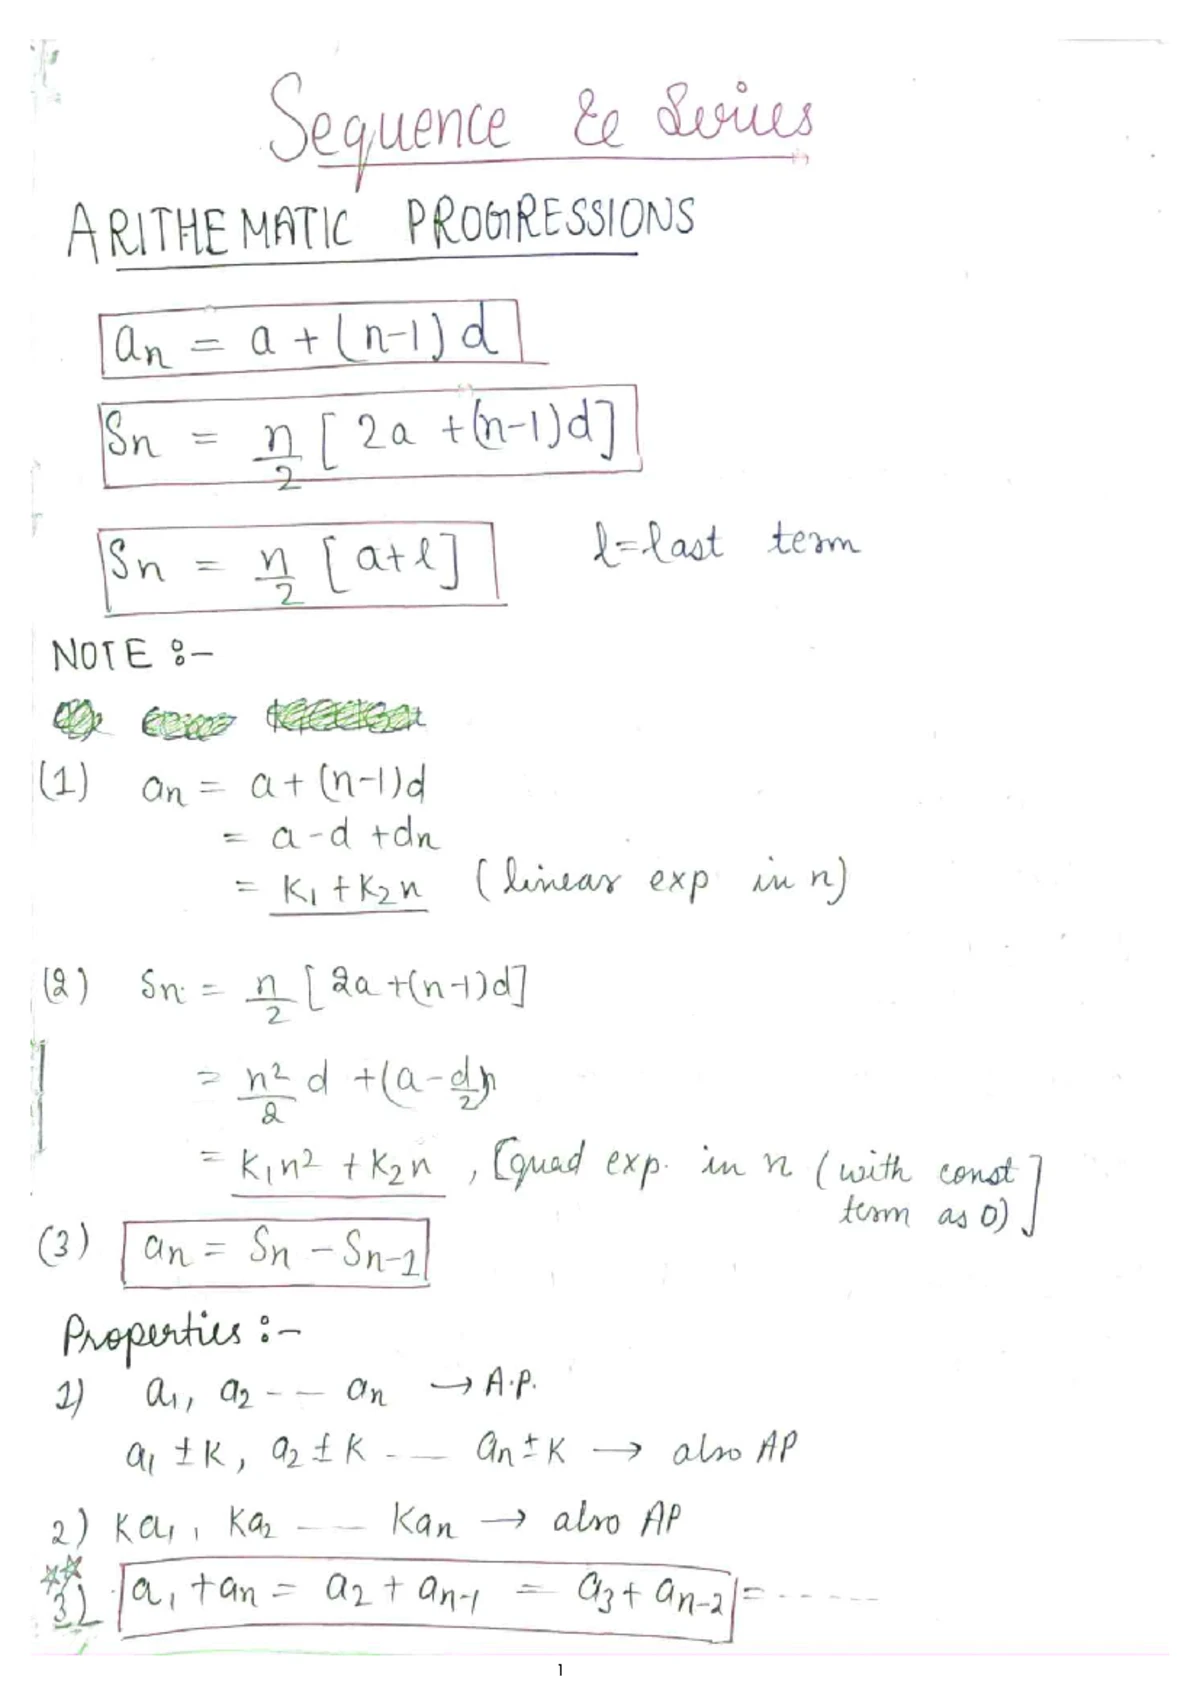 Sequence & Series
ARITHEMATIC PROGRESSIONS
an = a + (n-1) d
Sn = n/2 [ 2a + (n-1)d]
Sn = n/2 [a+l] l=last term
NOTE :-
(1) an = a + (n-1)d
= a-d + dn
= K1 + K2n (linear exp in n)
(2) Sn = n/2 [2a + (n-1)d]
= n²/2 d + (a-d/2)n
= K1n² + K2n , [quad exp. in n (with const term as 0)]
(3) an = Sn - Sn-1
Properties :-
1) a1, a2 ---- an → A.P.
a1 ± K, a2 ± K ---- an ± K → also AP
2) Ka1, Ka2 ---- Kan → also AP
3) a1 + an = a2 + an-1 = a3 + an-2 = ------
1